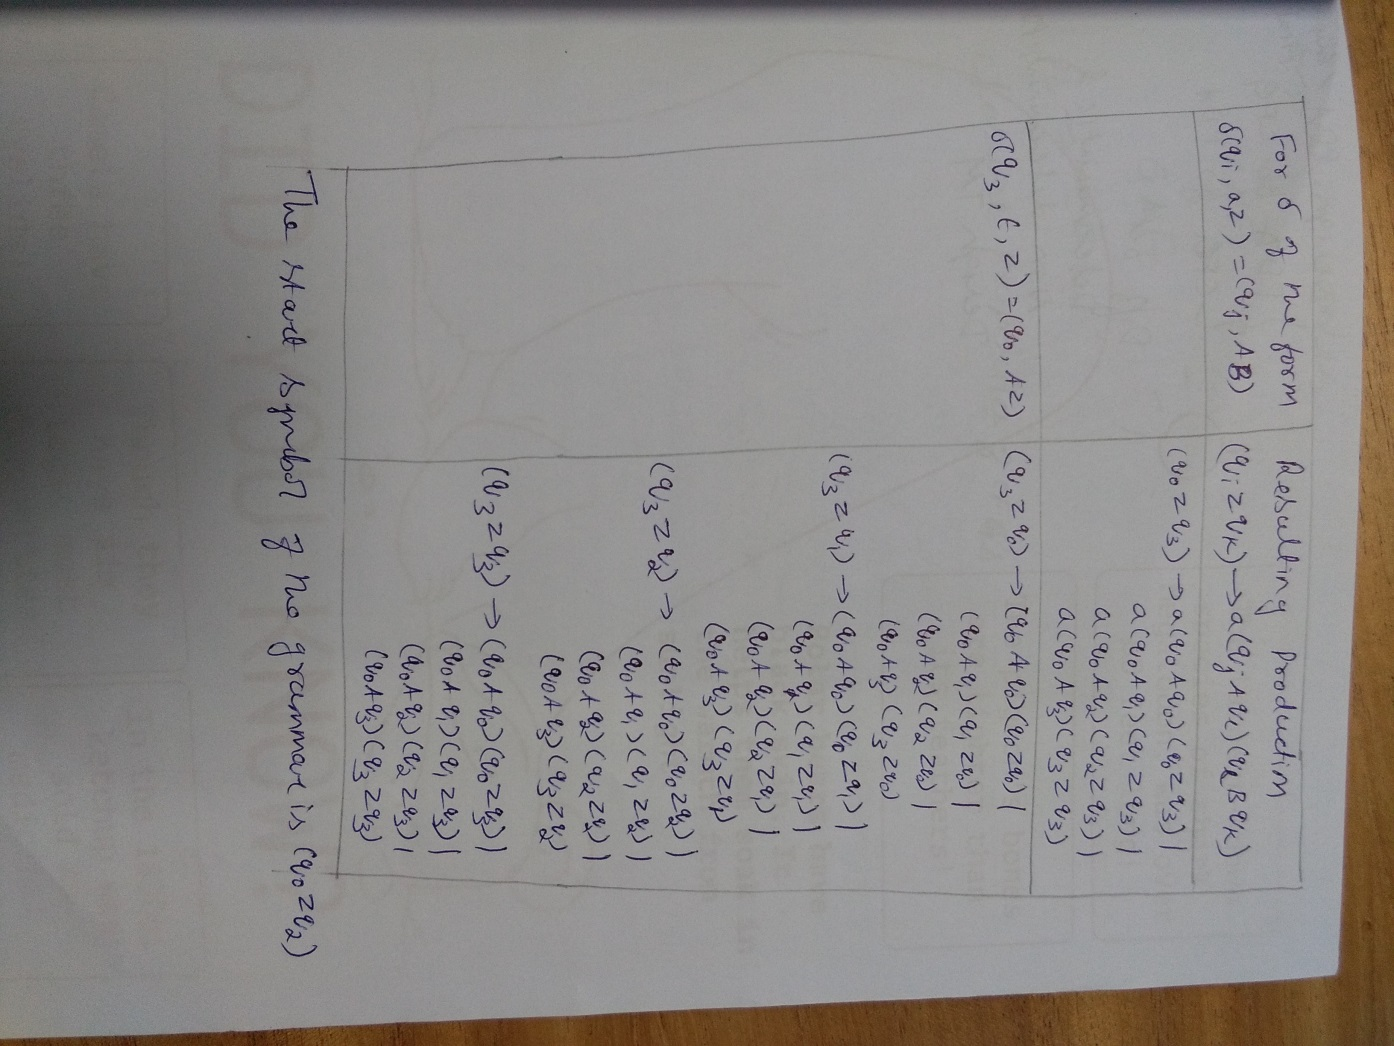 For δ of the form Resulting Production
δ(qi, a, z) = (qj, AB) (qi z qk) → a(qj A ql)(ql B qk)
(q0 z q3) → a(q0 A q0)(q0 z q3) |
a(q0 A q1)(q1 z q3) |
a(q0 A q2)(q2 z q3) |
a(q0 A q3)(q3 z q3)
δ(q3, ε, z) = (q0, Az) (q3 z q0) → (q0 A q0)(q0 z q0) |
(q0 A q1)(q1 z q0) |
(q0 A q2)(q2 z q0) |
(q0 A q3)(q3 z q0)
(q3 z q1) → (q0 A q0)(q0 z q1) |
(q0 A q1)(q1 z q1) |
(q0 A q2)(q2 z q1) |
(q0 A q3)(q3 z q1)
(q3 z q2) → (q0 A q0)(q0 z q2) |
(q0 A q1)(q1 z q2) |
(q0 A q2)(q2 z q2) |
(q0 A q3)(q3 z q2)
(q3 z q3) → (q0 A q0)(q0 z q3) |
(q0 A q1)(q1 z q3) |
(q0 A q2)(q2 z q3) |
(q0 A q3)(q3 z q3)
The start symbol of the grammar is (q0 z q2)